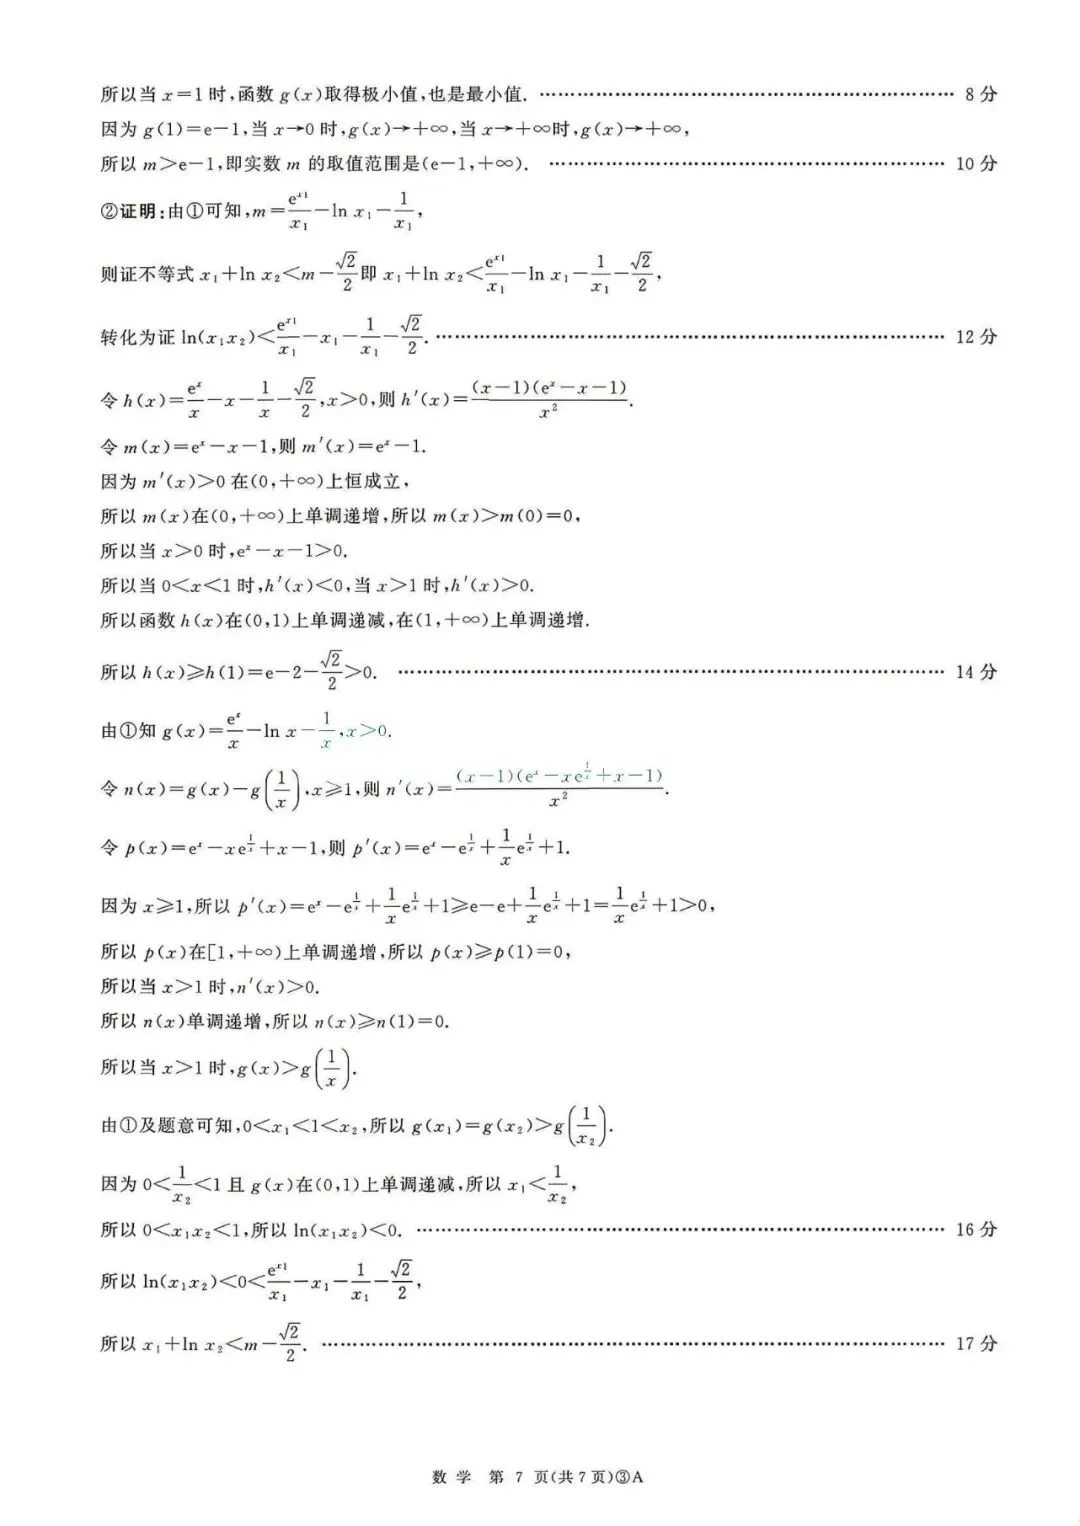 所以当 x=1 时,函数 g(x)取得极小值,也是最小值. …………………………………………………… 8 分
因为 g(1)=e-1,当 x→0 时,g(x)→+∞,当 x→+∞时,g(x)→+∞,
所以 m>e-1,即实数 m 的取值范围是(e-1,+∞). …………………………………………………… 10 分
②证明:由①可知,m=\frac{e^{x_1}}{x_1}-ln x_1-\frac{1}{x_1},
则证不等式 x_1+ln x_2<m-\frac{\sqrt{2}}{2}即 x_1+ln x_2<\frac{e^{x_1}}{x_1}-ln x_1-\frac{1}{x_1}-\frac{\sqrt{2}}{2},
转化为证 ln(x_1x_2)<\frac{e^{x_1}}{x_1}-x_1-\frac{1}{x_1}-\frac{\sqrt{2}}{2}. …………………………………………………… 12 分
令 h(x)=\frac{e^x}{x}-x-\frac{1}{x}-\frac{\sqrt{2}}{2},x>0,则 h'(x)=\frac{(x-1)(e^x-x-1)}{x^2}.
令 m(x)=e^x-x-1,则 m'(x)=e^x-1.
因为 m'(x)>0 在(0,+∞)上恒成立,
所以 m(x)在(0,+∞)上单调递增,所以 m(x)>m(0)=0,
所以当 x>0 时,e^x-x-1>0.
所以当 0<x<1 时,h'(x)<0,当 x>1 时,h'(x)>0.
所以函数 h(x)在(0,1)上单调递减,在(1,+∞)上单调递增.
所以 h(x)≥h(1)=e-2-\frac{\sqrt{2}}{2}>0. …………………………………………………… 14 分
由①知 g(x)=\frac{e^x}{x}-ln x-\frac{1}{x},x>0.
令 n(x)=g(x)-g(\frac{1}{x}),x≥1,则 n'(x)=\frac{(x-1)(e^x-xe^{\frac{1}{x}}+x-1)}{x^2}.
令 p(x)=e^x-xe^{\frac{1}{x}}+x-1,则 p'(x)=e^x-e^{\frac{1}{x}}+\frac{1}{x}e^{\frac{1}{x}}+1.
因为 x≥1,所以 p'(x)=e^x-e^{\frac{1}{x}}+\frac{1}{x}e^{\frac{1}{x}}+1≥e-e+\frac{1}{x}e^{\frac{1}{x}}+1=\frac{1}{x}e^{\frac{1}{x}}+1>0,
所以 p(x)在[1,+∞)上单调递增,所以 p(x)≥p(1)=0,
所以当 x>1 时,n'(x)>0.
所以 n(x)单调递增,所以 n(x)≥n(1)=0.
所以当 x>1 时,g(x)>g(\frac{1}{x}).
由①及题意可知,0<x_1<1<x_2,所以 g(x_1)=g(x_2)>g(\frac{1}{x_2}).
因为 0<\frac{1}{x_2}<1 且 g(x)在(0,1)上单调递减,所以 x_1<\frac{1}{x_2},
所以 0<x_1x_2<1,所以 ln(x_1x_2)<0. …………………………………………………… 16 分
所以 ln(x_1x_2)<0<\frac{e^{x_1}}{x_1}-x_1-\frac{1}{x_1}-\frac{\sqrt{2}}{2},
所以 x_1+ln x_2<m-\frac{\sqrt{2}}{2}. …………………………………………………… 17 分
数学 第 7 页(共 7 页)③A